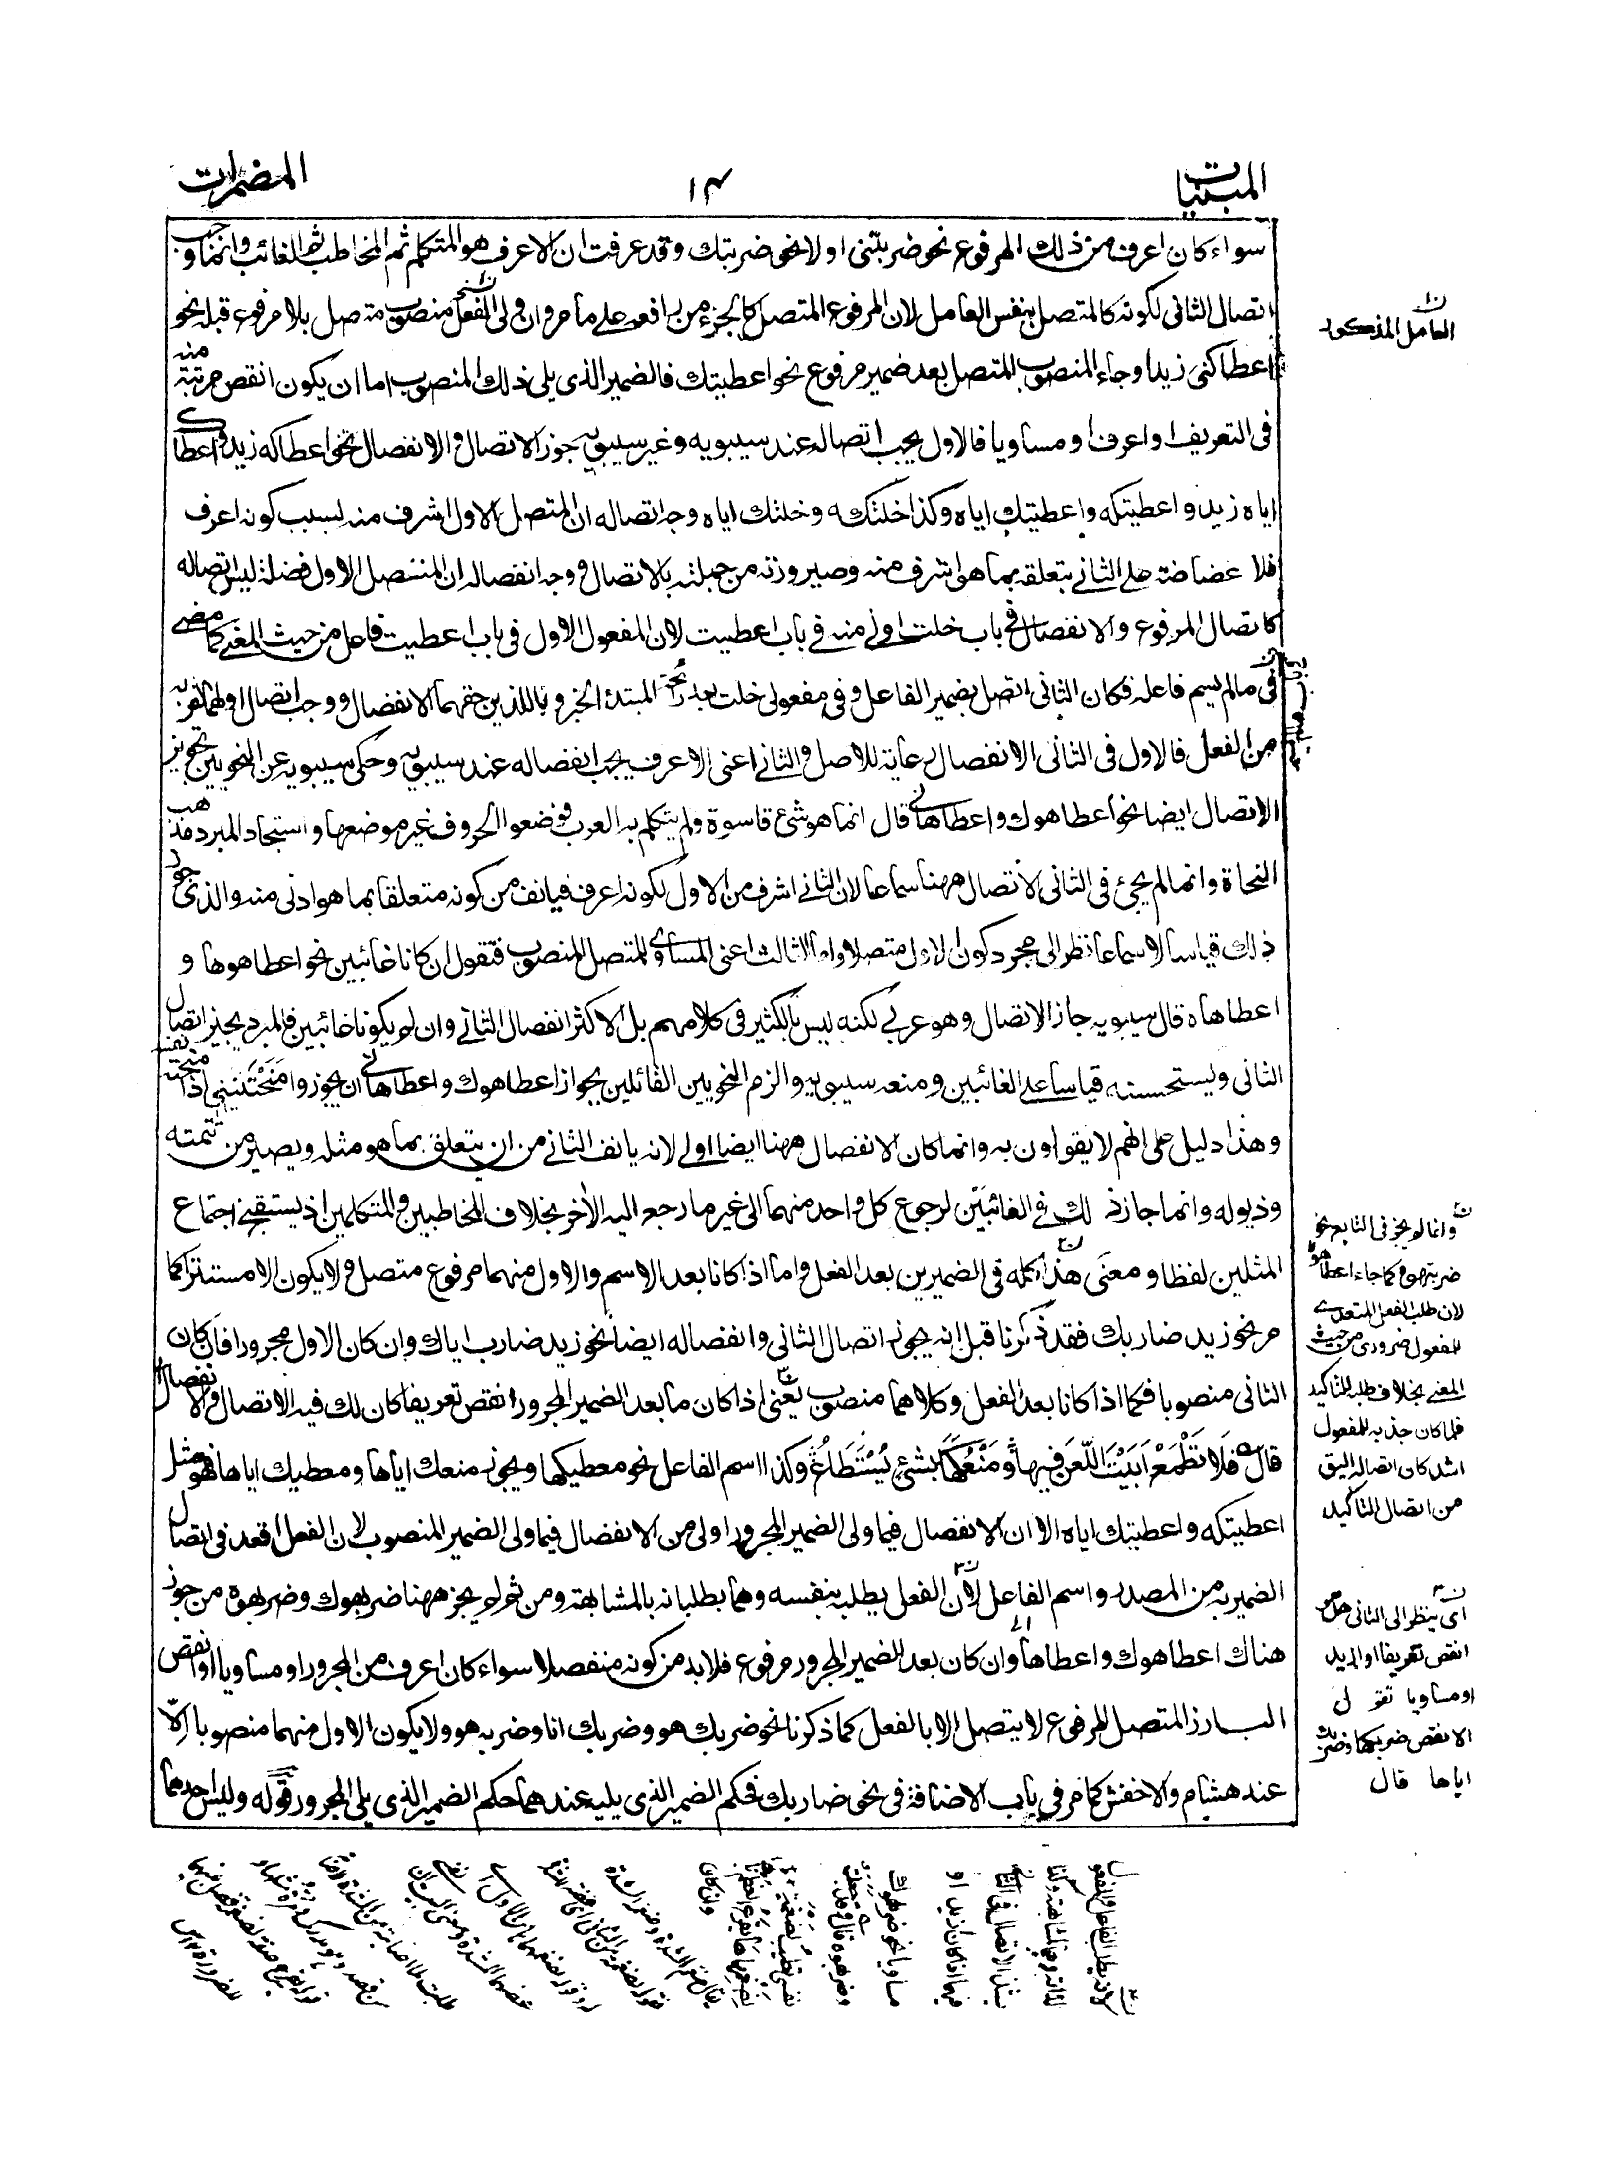 المبنيات
١٤
المضمرات
سواء كان اعرف من ذلك المرفوع نحو ضربتنى او لا نحو ضربتك وقد عرفت ان الاعرف هو المتكلم ثم المخاطب ثم الغائب وانما وجب
اتصال الثانى لكونه كالمتصل بنفس العامل لان المرفوع المتصل كالجزء من رافعه على ما مر وان ولى الفعل منصوب متصل بلا مرفوع قبله نحو
اعطاكنى زيد او جاء المنصوب المتصل بعد ضمير مرفوع نحو اعطيتك فالضمير الذى يلى ذلك المنصوب اما ان يكون انقص مرتبة منه
فى التعريف او اعرف او مساويا فالاول يجب اتصاله عند سيبويه وغير سيبويه جوز الاتصال والانفصال نحو اعطاكه زيد واعطاك
اياه زيد واعطيتكه واعطيتك اياه وكذا خلتكه وخلتك اياه وجه اتصاله ان المتصل الاول اشرف منه بسبب كونه اعرف
فلا غضاضة على الثانى بتعلقه بما هو اشرف منه وصيرورته من جملته بالاتصال ووجه انفصاله ان المتصل الاول فضلة ليس اتصاله
كاتصال المرفوع والانفصال فى باب خلت اولى منه فى باب اعطيت لان المفعول الاول فى باب اعطيت فاعل من حيث المعنى كما مضى
فى مالم يسم فاعله فكان الثانى اتصل بضمير الفاعل وفى مفعولى خلت بعد رائحة المبتدأ والخبر واللذين حقهما الانفصال ووجب اتصال اولهما لقربه
من الفعل فالاول فى الثانى الانفصال رعاية للاصل والثانى اعنى الاعرف يجب انفصاله عند سيبويه وحكى سيبويه عن النحويين تجويز
الاتصال ايضا نحو اعطاهوك واعطاهانى قال انما هو شئ قاسوه ولم يتكلم به العرب فوضعوا الحروف غير موضعها واستجاد المبرد مذهب
النحاة وانما لم يجئ فى الثانى الاتصال ههنا سماعا لان الثانى اشرف من الاول لكونه اعرف فيانف من كونه متعلقا بما هو ادنى منه والذى جوز
ذلك قياسا لا سماعا نظر الى مجرد كون الاول متصلا واما الثالث اعنى المساوى للمتصل المنصوب فتقول ان كانا غائبين نحو اعطاهوها و
اعطاهاه قال سيبويه جاز الاتصال وهو عربى لكنه ليس بالكثير فى كلامهم بل الاكثر انفصال الثانى وان لم يكونا غائبين فالمبرد يجيز اتصال
الثانى ويستحسنه قياسا على الغائبين ومنعه سيبويه والزم النحويين القائلين بجواز اعطاهوك واعطاهانى ان يجوزوا مَنَحْتَنِينِى اذا منحته نفسه
وهذا دليل على انهم لا يقولون به وانما كان الانفصال ههنا ايضا اولى لانه يانف الثانى من ان يتعلق بما هو مثله ويصير من تتمته
وذيوله وانما جاز ذلك فى الغائبَيْن لرجوع كل واحد منهما الى غير ما رجع اليه الاخر بخلاف المخاطبين والمتكلمين اذ يستقبح اجتماع
المثلين لفظا ومعنى هذا كله فى الضميرين بعد الفعل واما اذا كانا بعد الاسم والاول منهما مرفوع متصل ولا يكون الا مستترا كما
مر نحو زيد ضاربك فقد ذكرنا قبل انه يجوز اتصال الثانى وانفصاله ايضا نحو زيد ضارب اياك وان كان الاول مجرورا فان كان
الثانى منصوبا فكما اذا كانا بعد الفعل وكلاهما منصوب يعنى اذا كان ما بعد الضمير المجرور انقص تعريفا كان لك فيه الاتصال والانفصال
قال فَلَا تَطْمَعْ اَبَيْتَ اللَّعنَ فِيهَا وَمَنْعُكَهَا بشئٍ يُسْتَطَاعُ وكذا اسم الفاعل نحو معطيكها ويجوز منعك اياها ومعطيك اياها فهو مثل
اعطيتكه واعطيتك اياه الا ان الانفصال فيما ولى الضمير المجرور اولى من الانفصال فيما ولى الضمير المنصوب لان الفعل اقعد فى اتصال
الضمير به من المصدر واسم الفاعل لان الفعل يطلبه بنفسه وهما يطلبانه بالمشابهة ومن ثم لم يجز ههنا ضربهوك وضربهوه من جوز
هناك اعطاهوك واعطاهاه وان كان بعد الضمير المجرور مرفوع فلا بد من كونه منفصلا سواء كان اعرف من المجرور او مساويا او انقص
البارز المتصل المرفوع لا يتصل الا بالفعل كما ذكرنا نحو ضربك هو وضربك انا وضربه هو ولا يكون الاول منهما منصوبا الا
عند هشام والاخفش كما مر فى باب الاضافة فى نحو ضاربك فحكم الضمير الذى يليه عندهما حكم الضمير الذى يلى المجرور قوله وليس احدهما
العامل المذكور
وانما لم يجز فى التابع نحو
ضربتهوه كما جاء اعطاهوه
لان طلب الفعل المتعدى
للمفعول ضرورى من حيث
المعنى بخلاف طلبه للتاكيد
فلما كان جذبه للمفعول
اشد كان اتصاله اليق
من اتصال التاكيد
اى ينظر الى الثانى هل هو
انقص تعريفا او ازيد
او مساويا تقول
الانقص ضربكها وضربك
اياها قال